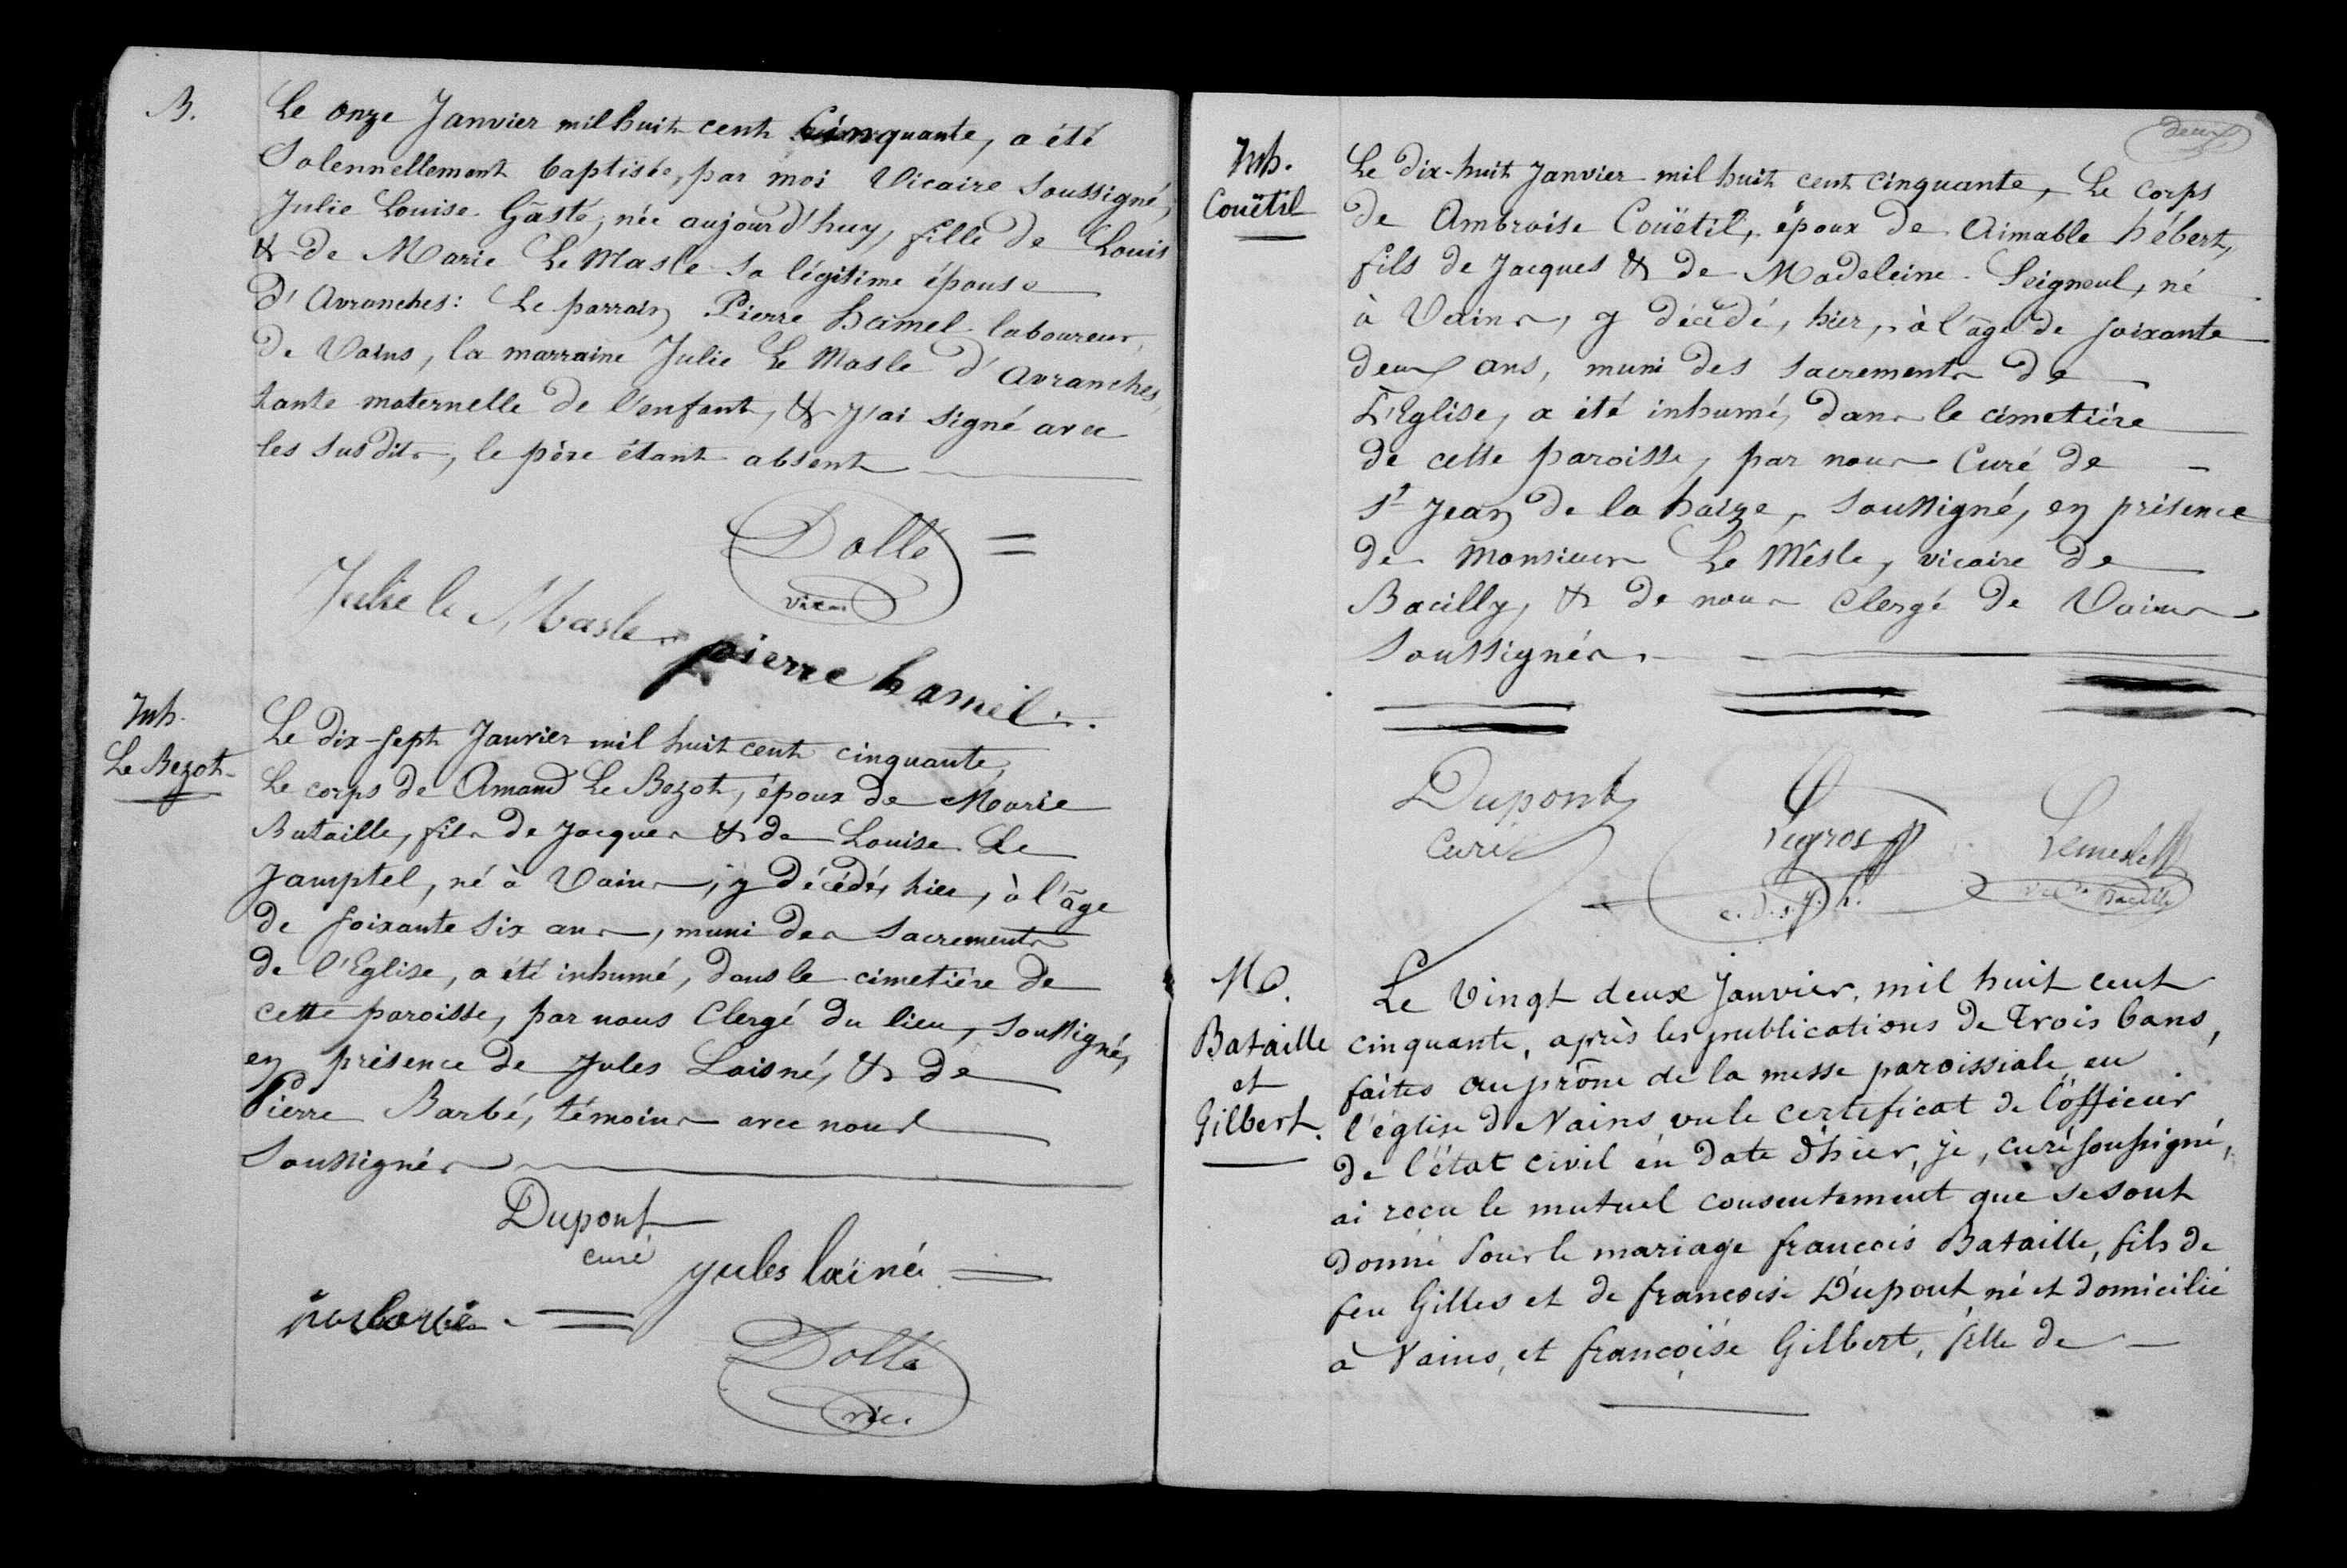 B.
Le onze Janvier mil huit cent Cinquante, a été
Solennellement baptisée, par moi Vicaire Soussigné,
Julie Louise Gâsté, née aujourd'huy, fille de Louis
& de Marie Le Masle sa légitime épouse
d'Avranches: Le parrain Pierre hamel laboureur,
de Vains, la marraine Julie Le Masle d'Avranches,
tante maternelle de l'enfant, & j'ai signé avec
les susdits, le père étant absent
Dolle
vicaire
Julie le Masle
pierre hamel
Inh.
Le Bezot
Le dix-sept Janvier mil huit cent cinquante,
Le corps de Amand Le Bezot, époux de Marie
Bataille, fils de Jacques & de Louise Le
Jamptel, né à Vains, y décédé, hier, à l'âge
de soixante six ans, muni des Sacrements
de l'Eglise, a été inhumé, dans le cimetière de
cette paroisse, par nous Clergé du lieu, soussigné,
en présence de Jules Laisné, & de
Pierre Barbé, témoins avec nous
Soussignés
Dupont
curé
jules lainé
Dolle
vic.
deux
Inh.
Couëtil
Le dix-huit Janvier mil huit cent cinquante, Le corps
de Ambroise Couëtil, époux de Aimable hébert,
fils de Jacques & de Madeleine Seigneul, né
à Vains, y décédé, hier, à l'âge de soixante
deux ans, muni des sacrements de
L'Eglise, a été inhumé, dans le cimetière
de cette paroisse, par nous Curé de
St Jean de la haize, soussigné, en présence
de Monsieur Le Mêsle, vicaire de
Bacilly, & de nous Clergé de Vains
Soussignés.
Dupont
Curé
Legros
c. d. s. j. h.
Lemesle
vic. de Bacilly
M.
Bataille
et
Gilbert.
Le Vingt deux Janvier, mil huit cent
cinquante, après les publications de Trois bans,
faites au prône de la messe paroissiale en
l'église de Vains, vu le certificat de l'officier
de l'état civil en date d'hier, je, curé soussigné,
ai reçu le mutuel consentement que se sont
donné pour le mariage françois Bataille, fils de
feu Gilles et de françoise Dupont né et domicilié
à Vains, et françoise Gilbert, fille de